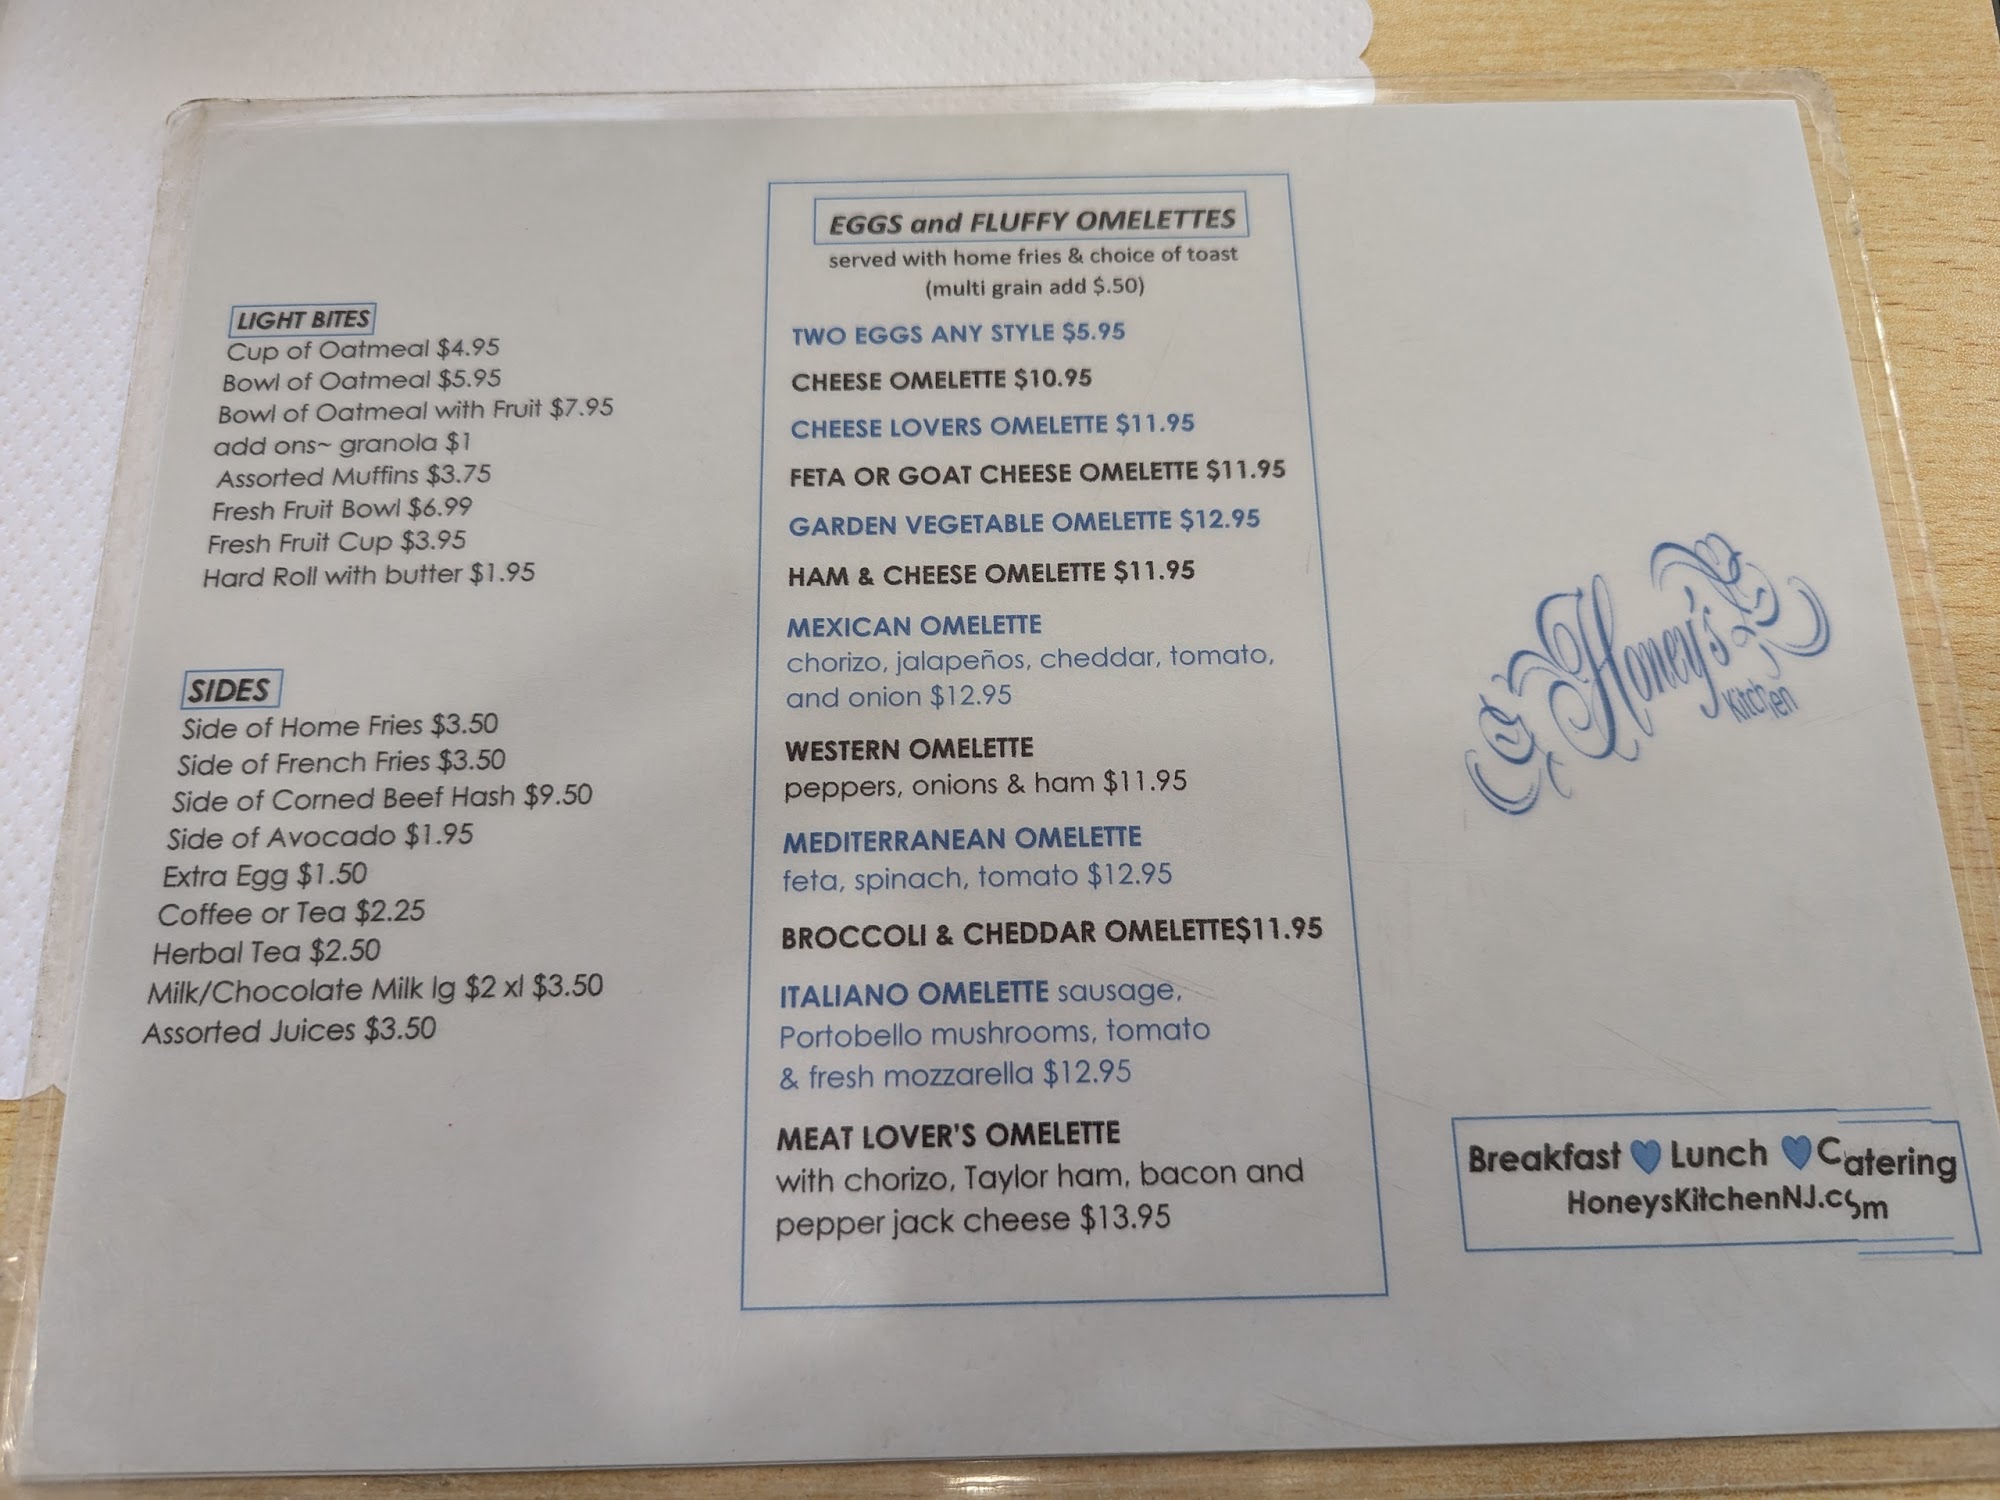 LIGHT BITES
Cup of Oatmeal $4.95
Bowl of Oatmeal $5.95
Bowl of Oatmeal with Fruit $7.95
add ons~ granola $1
Assorted Muffins $3.75
Fresh Fruit Bowl $6.99
Fresh Fruit Cup $3.95
Hard Roll with butter $1.95
SIDES
Side of Home Fries $3.50
Side of French Fries $3.50
Side of Corned Beef Hash $9.50
Side of Avocado $1.95
Extra Egg $1.50
Coffee or Tea $2.25
Herbal Tea $2.50
Milk/Chocolate Milk lg $2 xl $3.50
Assorted Juices $3.50
EGGS and FLUFFY OMELETTES
served with home fries & choice of toast
(multi grain add $.50)
TWO EGGS ANY STYLE $5.95
CHEESE OMELETTE $10.95
CHEESE LOVERS OMELETTE $11.95
FETA OR GOAT CHEESE OMELETTE $11.95
GARDEN VEGETABLE OMELETTE $12.95
HAM & CHEESE OMELETTE $11.95
MEXICAN OMELETTE
chorizo, jalapeños, cheddar, tomato,
and onion $12.95
WESTERN OMELETTE
peppers, onions & ham $11.95
MEDITERRANEAN OMELETTE
feta, spinach, tomato $12.95
BROCCOLI & CHEDDAR OMELETTE$11.95
ITALIANO OMELETTE sausage,
Portobello mushrooms, tomato
& fresh mozzarella $12.95
MEAT LOVER'S OMELETTE
with chorizo, Taylor ham, bacon and
pepper jack cheese $13.95
Honey's
Kitchen
Breakfast 💙 Lunch 💙 Catering
HoneysKitchenNJ.com